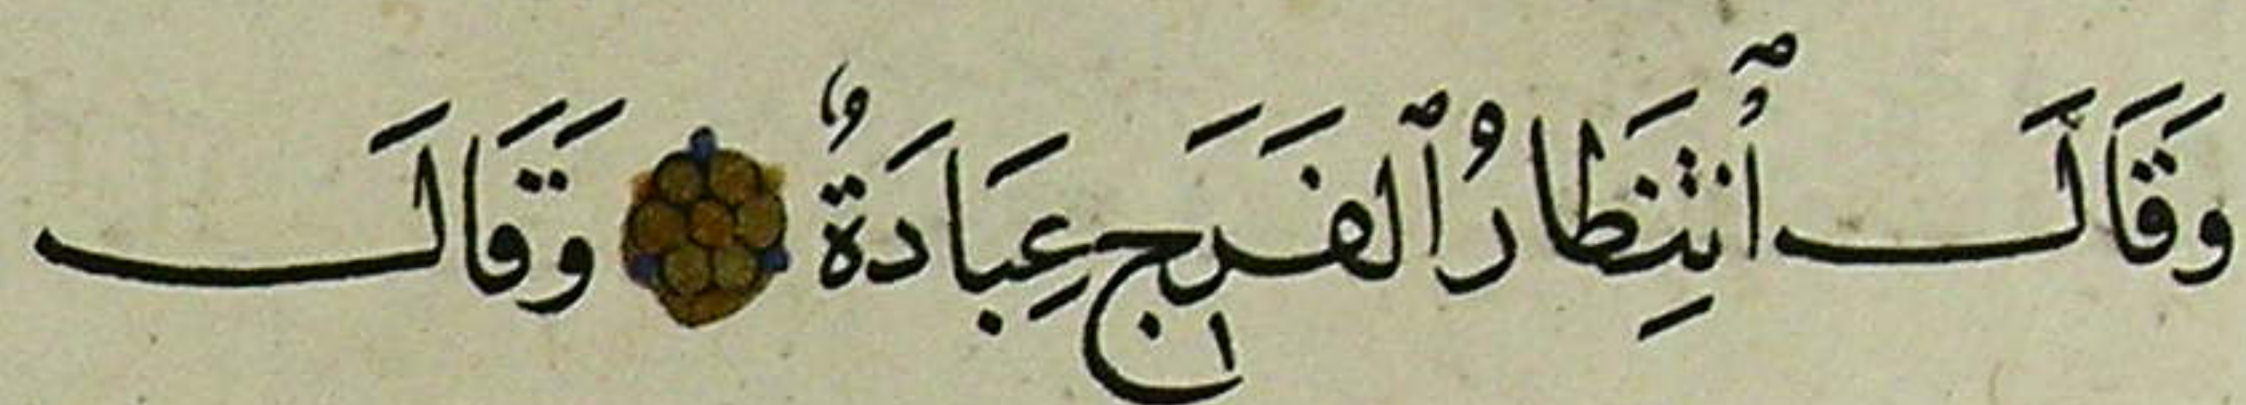 وَقَالَ ٱنتِظَارُ ٱلفَرَجِ عِبَادَةٌ وَقَالَ